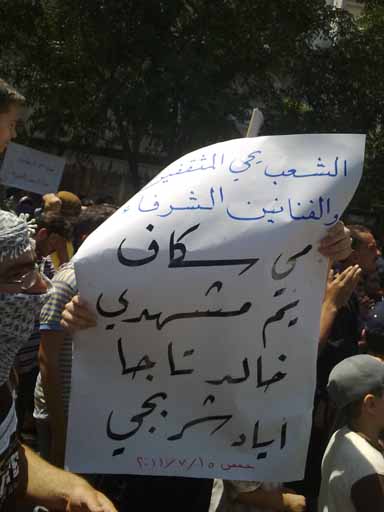 الشعب يحي المثقفين
والفنانين الشرفاء
مي سكاف
يم مشهدي
خالد تاجا
اياد شربجي
حمص ٢٠١١/٧/١٥